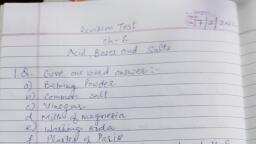 Revision Test
Ch-6
Acid, Bases and Salts
1Q. Give one word answer :-
a) Baking Powder
b) Common salt
c) Vinegar
d) Milk of magnesia
e) Washing soda
f) Plaster of Paris